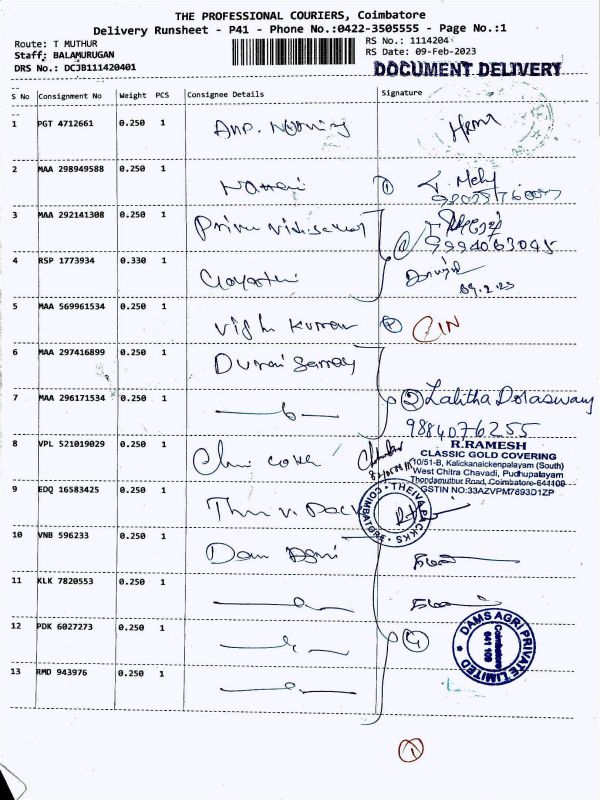 THE PROFESSIONAL COURIERS, Coimbatore
Delivery Runsheet - P41 - Phone No.:0422-3505555 - Page No.:1
Route: T MUTHUR
RS No.: 1114204
Staff: BALAMURUGAN
RS Date: 09-Feb-2023
DRS No.: DCJB111420401
DOCUMENT DELIVERY
S No Consignment No Weight PCS Consignee Details Signature
1 PGT 4712661 0.250 1
2 MAA 298949588 0.250 1 ①
3 MAA 292141308 0.250 1
9994063045
4 RSP 1773934 0.330 1 Gayathri
09.2.23
5 MAA 569961534 0.250 1 Vighu Kumar ②
6 MAA 297416899 0.250 1 Durai Samy
7 MAA 296171534 0.250 1 ② Lalitha Doraswamy
9884076255
8 VPL 521019029 0.250 1
R.RAMESH
CLASSIC GOLD COVERING
10/51-B, Kalickanaickenpalayam (South)
West Chitra Chavadi, Pudhupalayam
Thondamuthur Road, Coimbatore-641109
GSTIN NO:33AZVPM7893D1ZP
9 EDQ 16583425 0.250 1
THEIVA PACKKS
COIMBATORE
10 VNB 596233 0.250 1 Dam Agri
11 KLK 7820553 0.250 1
12 PDK 6027273 0.250 1 ④
DAMS AGRI PRIVATE LIMITED
Coimbatore
641 109
13 RMD 943976 0.250 1
①